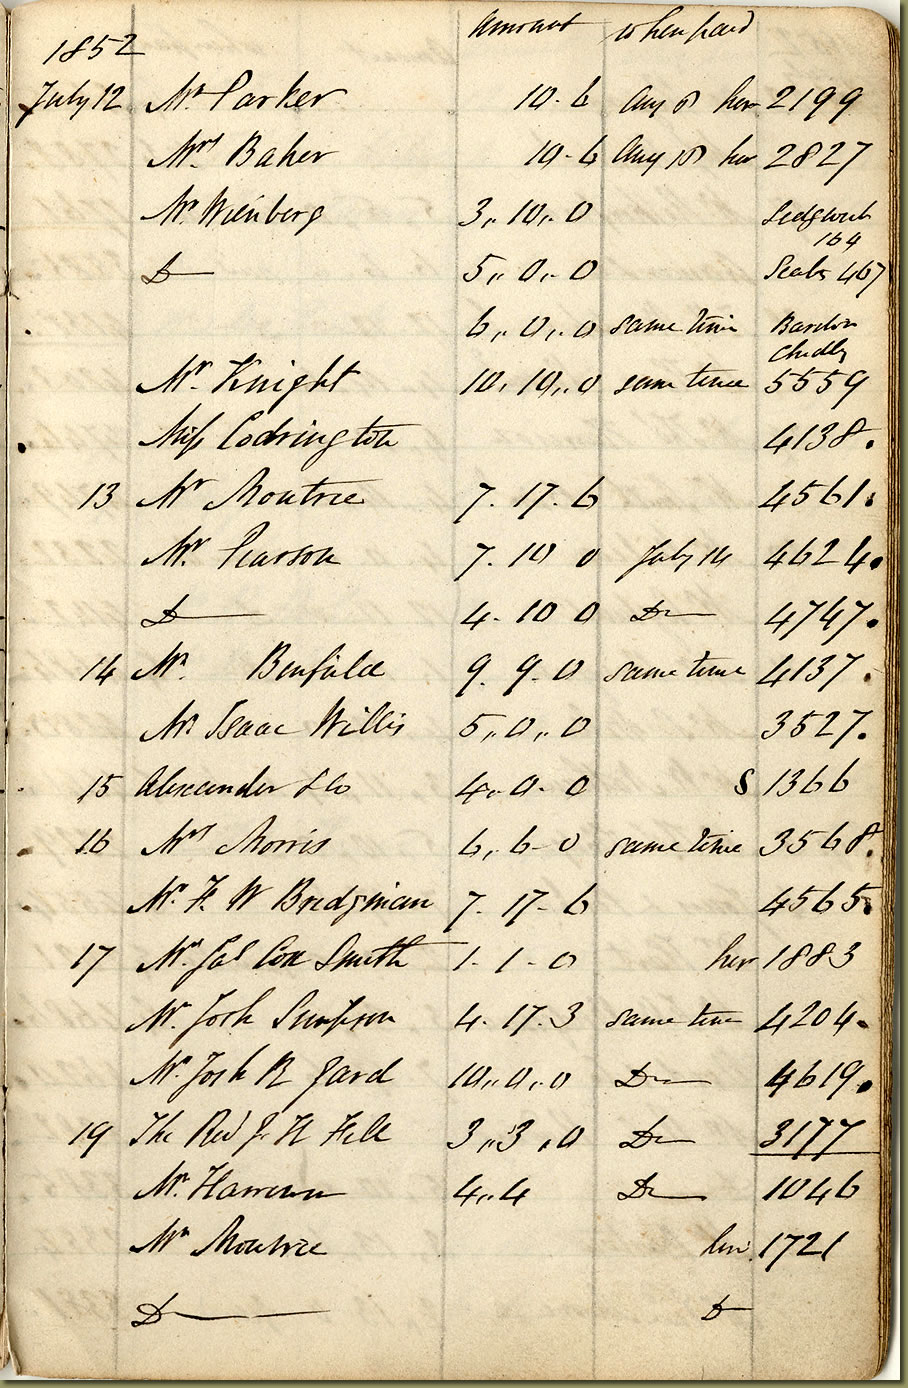 1852 Amount when paid
July 12 Mr Parker 10-6 Aug 8 her 2199
Mrs Baker 10-6 Aug 18 her 2827
Mr Wienberg 3,,10,,0 Sedgwick
164
D 5,,0,,0 Scales 467
6,,0,,0 same time
Chidly
Mr Knight 10,10,,0 same time 5559
Miss Codrington 4138.
13 Mr Moutrie 7.17.6 4561.
Mr Pearson 7.10 0 July 14 4624.
D 4.10 0 Do 4747.
14 Mr Benfield 9.9-0 same time 4137.
Mr Isaac Willis 5,,0,,0 3527.
15 Alexander & Co 4,,0-0 S 1366
16 Mrs Morris 6,6-0 same time 3568.
Mr F. W Bredgman 7.17-6 4565.
17 Mr Jas Cox Smith 1-1-0 her 1883
Mr. Josh Simpson 4.17.3 same time 4204.
Mr Josh R Gard 10,,0,,0 Do 4619.
19 The Revd J. H Hill 3,,3,,0 Do 3177
Mr. 4,,4 Do 1046
Mr Moutrie her 1721
D D